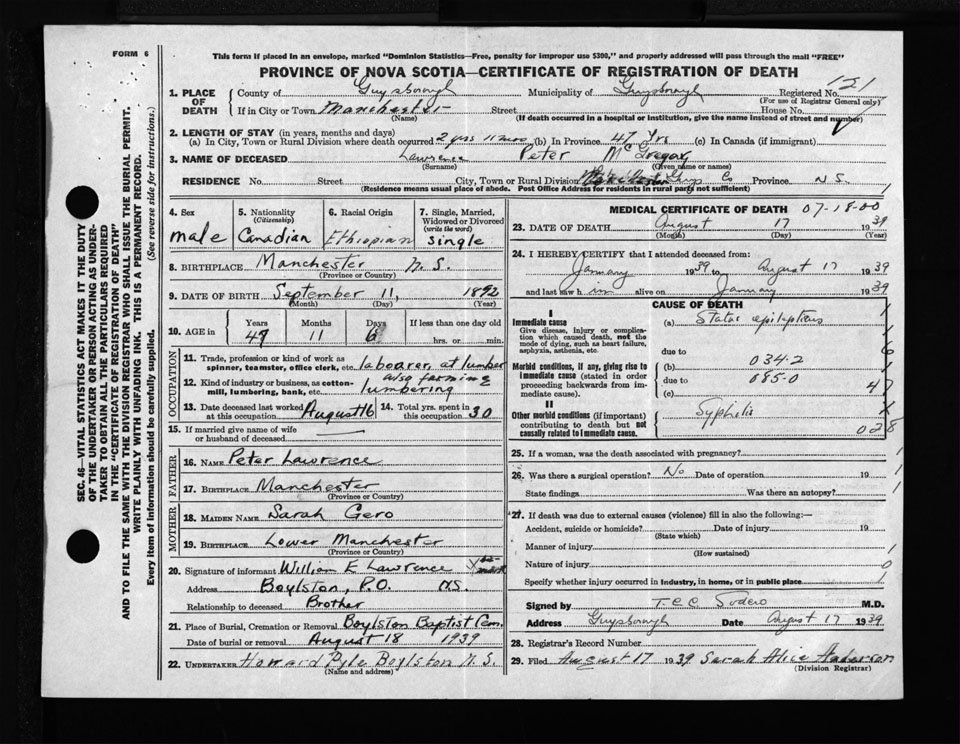 FORM 6
This form if placed in an envelope, marked "Dominion Statistics—Free, penalty for improper use $300," and properly addressed will pass through the mail "FREE"
PROVINCE OF NOVA SCOTIA—CERTIFICATE OF REGISTRATION OF DEATH
SEC. 46—VITAL STATISTICS ACT MAKES IT THE DUTY
OF THE UNDERTAKER OR PERSON ACTING AS UNDER-
TAKER TO OBTAIN ALL THE PARTICULARS REQUIRED
IN THE "CERTIFICATE OF REGISTRATION OF DEATH"
AND TO FILE THE SAME WITH THE DIVISION REGISTRAR WHO SHALL ISSUE THE BURIAL PERMIT.
WRITE PLAINLY WITH UNFADING INK. THIS IS A PERMANENT RECORD.
Every item of information should be carefully supplied. (See reverse side for instructions.)
1. PLACE OF DEATH County of Guysborough Municipality of Guysborough Registered No. 121
(For use of Registrar General only)
If in City or Town Manchester Street House No.
(Name) (If death occurred in a hospital or institution, give the name instead of street and number)
2. LENGTH OF STAY (in years, months and days)
(a) In City, Town or Rural Division where death occurred 2 yrs 11 mos (b) In Province 47 Yrs (c) In Canada (if immigrant)
3. NAME OF DECEASED Lawrence Peter McGregor
(Surname) (Given name or names)
RESIDENCE No. Street City, Town or Rural Division Manchester Guys Co Province N S. 1
(Residence means usual place of abode. Post Office Address for residents in rural parts not sufficient)
4. Sex male
5. Nationality (Citizenship) Canadian
6. Racial Origin Ethiopian
7. Single, Married, Widowed or Divorced (write the word) Single
8. BIRTHPLACE Manchester N. S.
(Province or Country)
9. DATE OF BIRTH September 11, 1892
(Month) (Day) (Year)
10. AGE in Years Months Days If less than one day old
11 6 hrs. or min.
OCCUPATION
11. Trade, profession or kind of work as spinner, teamster, office clerk, etc. laboarer, at lumber
12. Kind of industry or business, as cotton-mill, lumbering, bank, etc. also farming lumbering
13. Date deceased last worked at this occupation August 16 14. Total yrs. spent in this occupation 30
15. If married give name of wife or husband of deceased
FATHER
16. NAME Peter Lawrence
17. BIRTHPLACE Manchester
(Province or Country)
MOTHER
18. MAIDEN NAME Sarah Gero
19. BIRTHPLACE Lower Manchester
(Province or Country)
20. Signature of informant William E Lawrence
Address Boylston, P.O. N.S.
Relationship to deceased Brother
21. Place of Burial, Cremation or Removal Boylston Baptist Cem.
Date of burial or removal August 18 1939
22. UNDERTAKER Howard Pyle Boylston N. S.
(Name and address)
MEDICAL CERTIFICATE OF DEATH 07-18-00
23. DATE OF DEATH August 17 1939
(Month) (Day) (Year)
24. I HEREBY CERTIFY that I attended deceased from:
January 1939 to August 17 1939
and last saw him alive on January 1939
CAUSE OF DEATH
I
Immediate cause
Give disease, injury or complication which caused death, not the mode of dying, such as heart failure, asphyxia, asthenia, etc.
(a) Status epilepticus
due to
Morbid conditions, if any, giving rise to immediate cause (stated in order proceeding backwards from immediate cause).
(b) 034.2
due to 085.0
(c) 47
II
Other morbid conditions (if important) contributing to death but not causally related to immediate cause.
Syphilis
028
25. If a woman, was the death associated with pregnancy? 1
26. Was there a surgical operation? No Date of operation 19 1
State findings Was there an autopsy? 1
27. If death was due to external causes (violence) fill in also the following:—
Accident, suicide or homicide? Date of injury 19
(State which)
Manner of injury 1
(How sustained)
Nature of injury 0
Specify whether injury occurred in industry, in home, or in public place 1
Signed by T. C C Sodero M.D.
Address Guysborough Date August 17 1939
28. Registrar's Record Number
29. Filed August 17 1939 Sarah Alice Anderson
(Division Registrar)